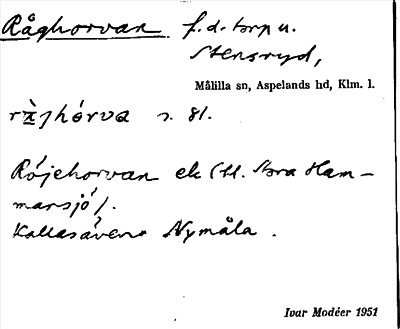 Råghorvan f. d. torp u.
Stensryd,
Målilla sn, Aspelands hd, Klm. l.
s. 81.
Röjehorvan ek (t. Stora Ham-
marsjö).
Kallas även Nymåla .
Ivar Modéer 1951